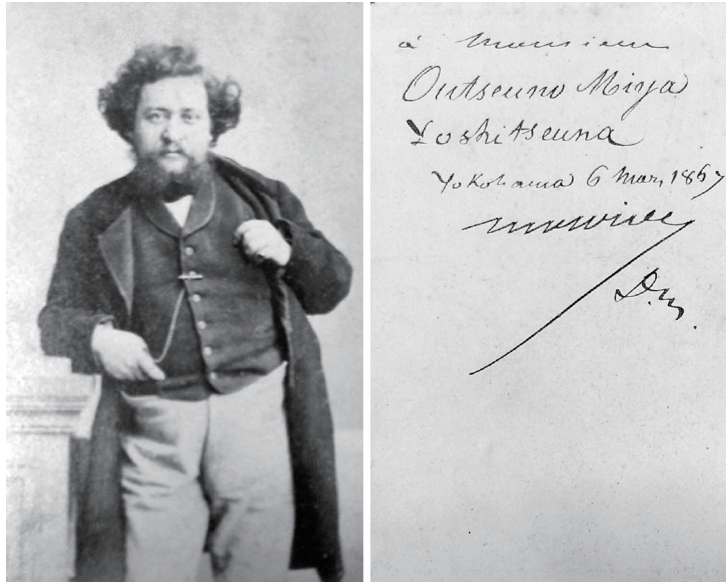 à Monsieur
Outseuno Miya
Yoshitseuna
Yokohama 6 Mars 1867
D.M.